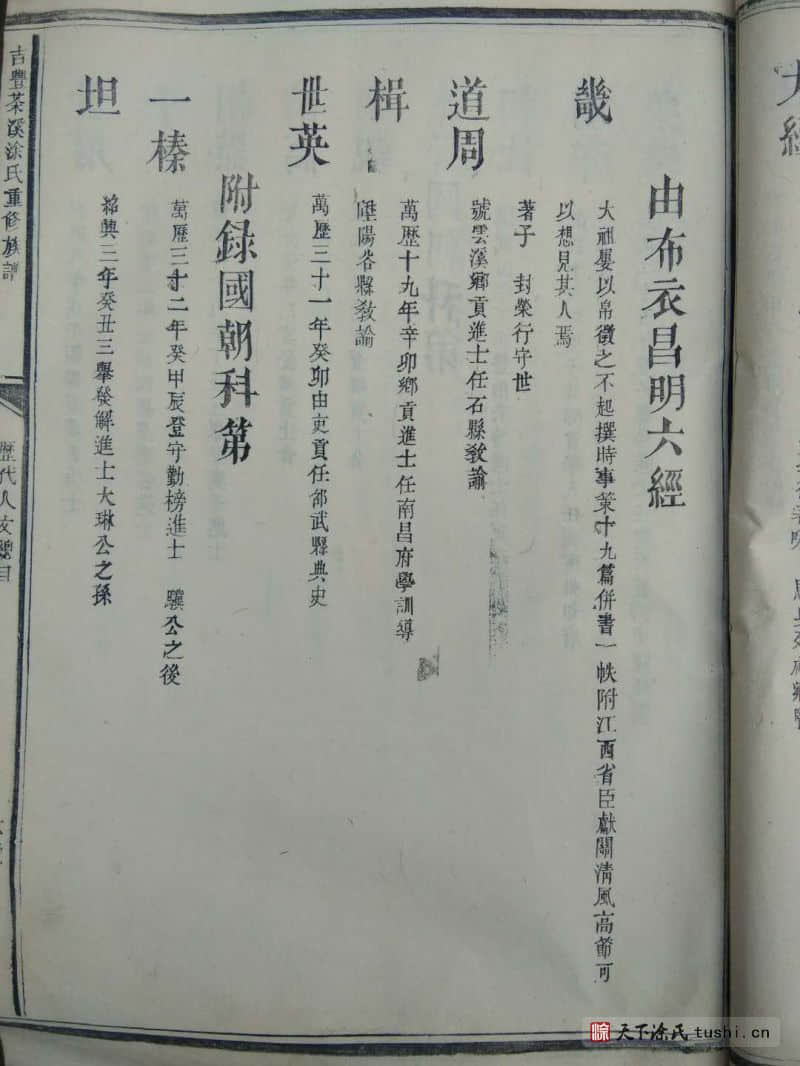 大經
由布衣昌明六經
畿
大祖屢以帛徵之不起撰時事策十九篇併書一帙附江西省臣獻闕清風高節可
以想見其人焉
著于 封榮行守世
道周
號雲溪鄉貢進士任石縣教諭
楫
萬歷十九年辛卯鄉貢進士任南昌府學訓導
陽各縣教諭
世英
萬歷三十一年癸卯由吏貢任邵武縣典史
附錄國朝科第
一榛
萬歷三十二年癸甲辰登守勤榜進士 驥公之後
坦
紹興三年癸丑三舉發解進士大琳公之孫
吉豐茶溪涂氏重修族譜
歷代人文總目
涂 天下涂氏 tushi.cn